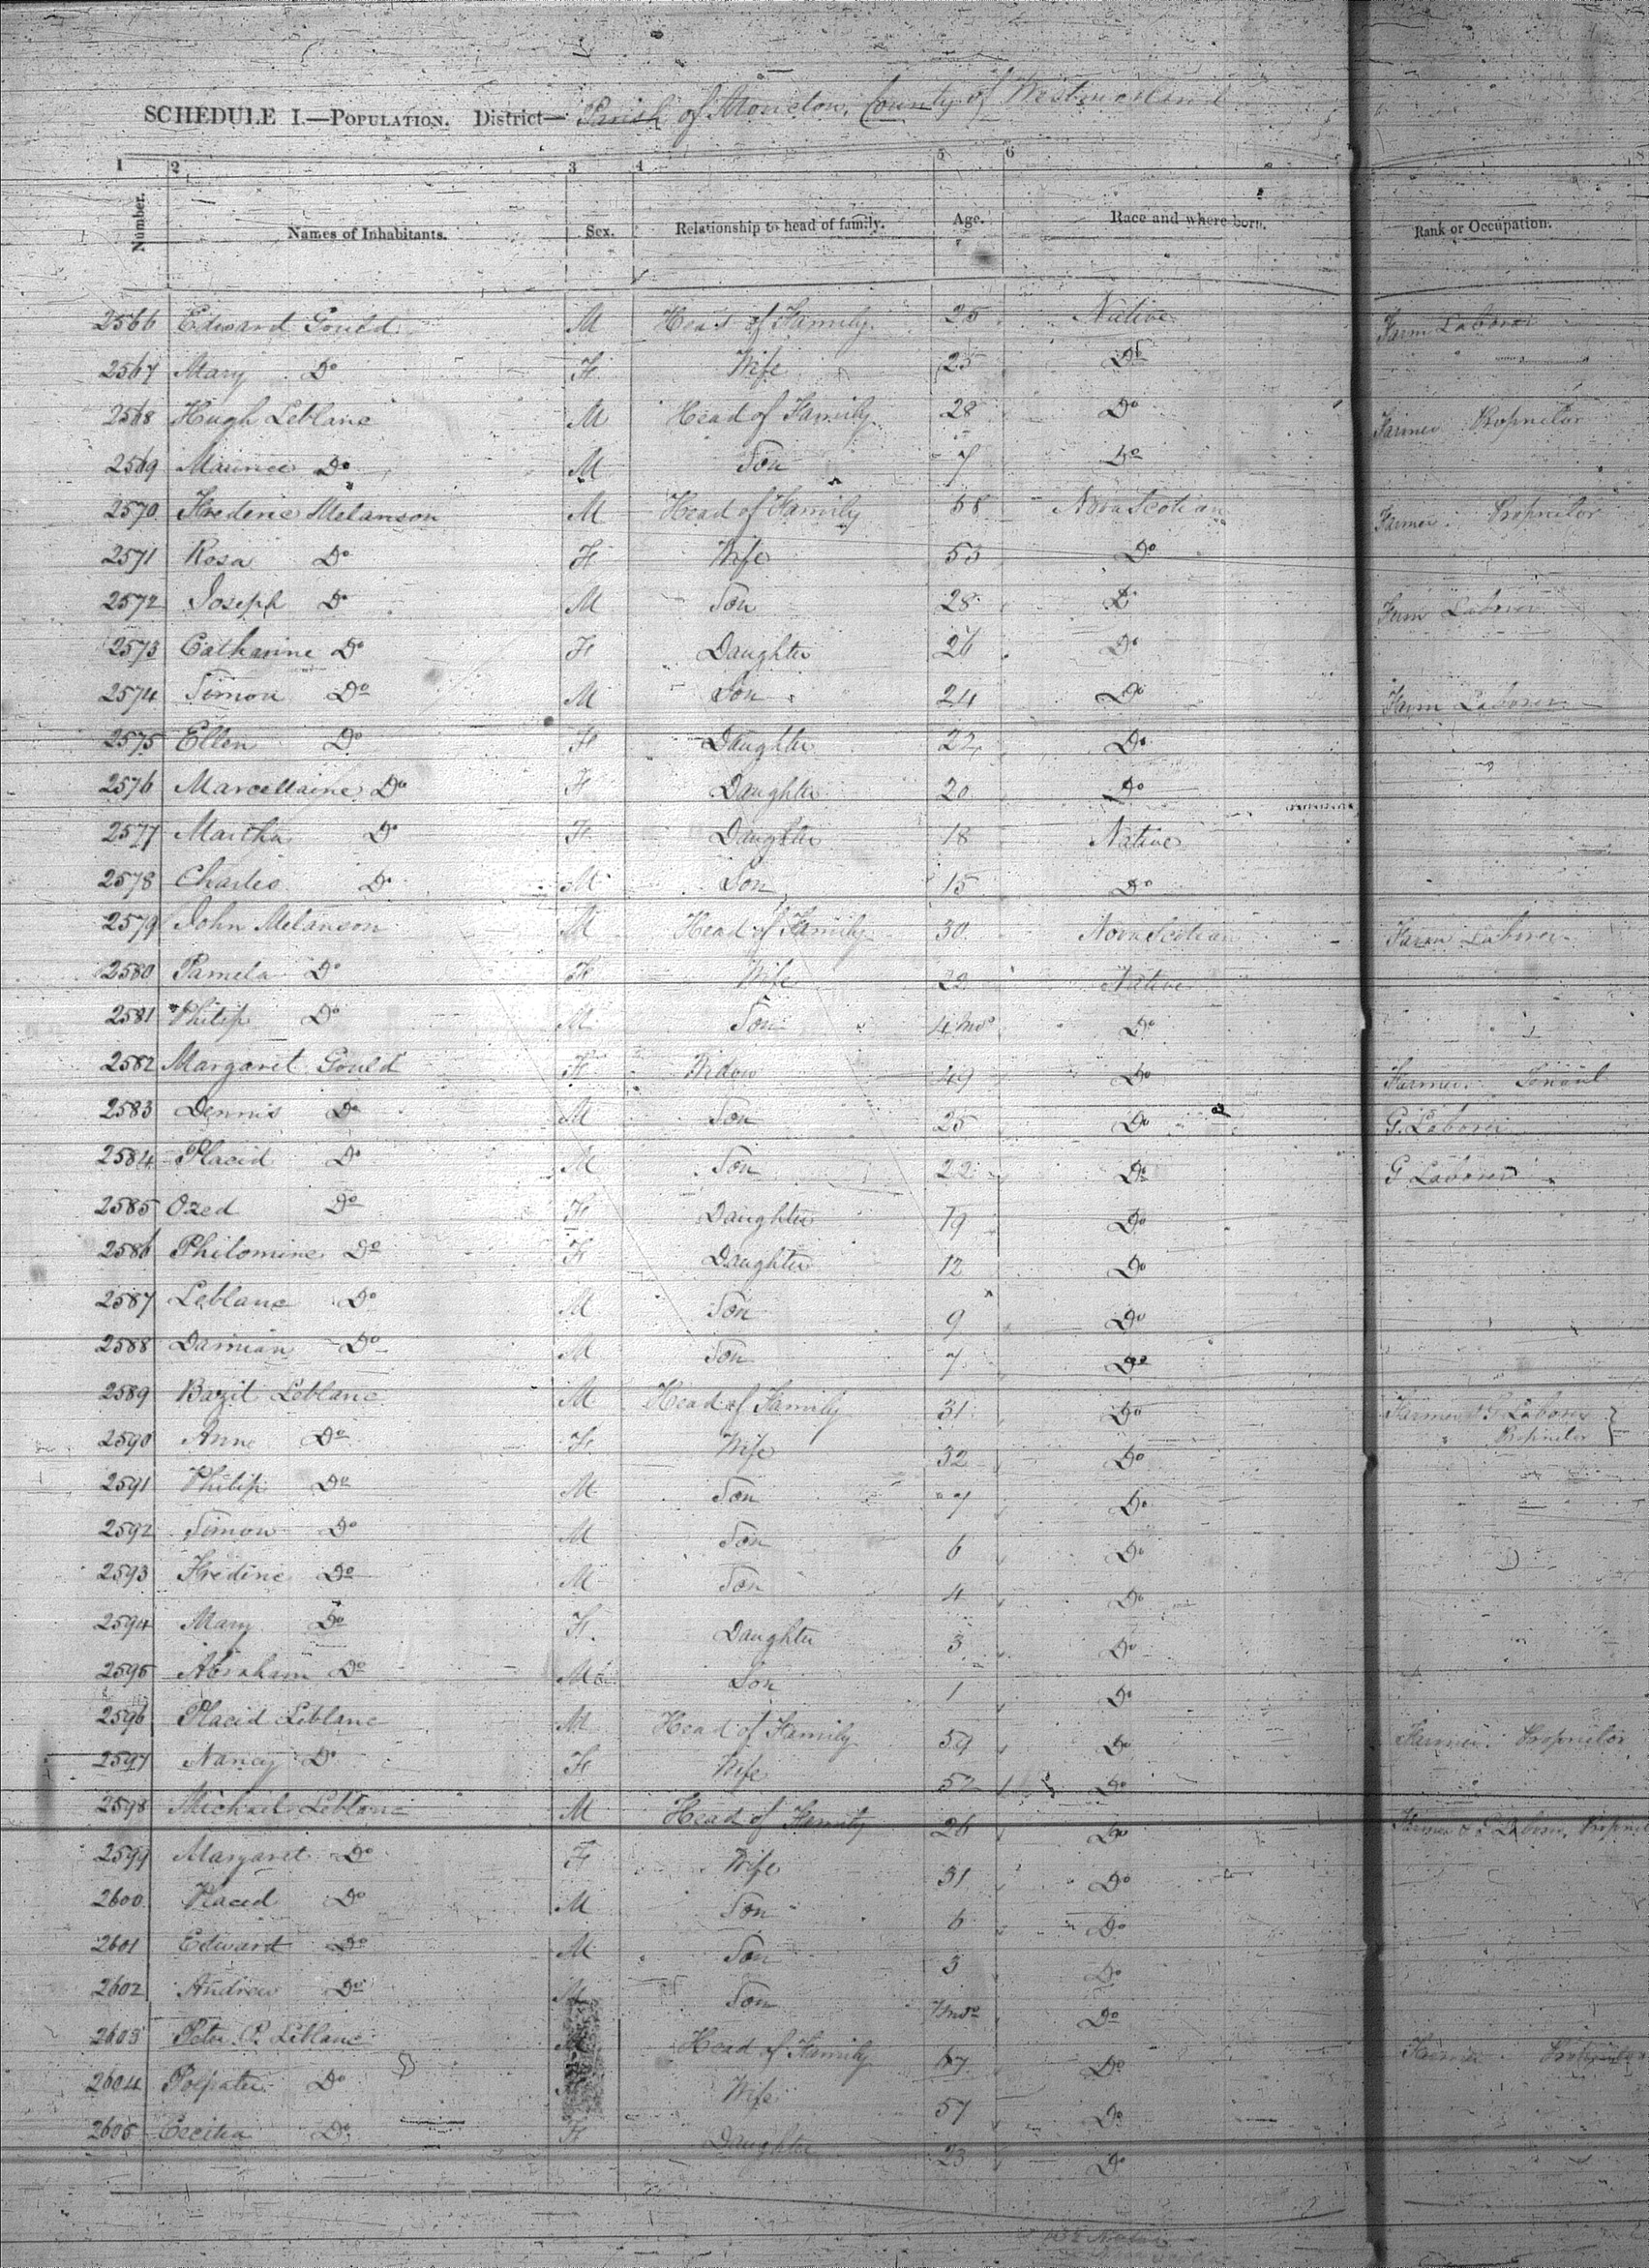 SCHEDULE I.—POPULATION. District— Parish of Moncton, County of Westmorland
1 2 3 4 5 6
Number. Names of Inhabitants. Sex. Relationship to head of family. Age. Race and where born. Rank or Occupation.
2566 Edward Gould M Head of Family 25 Native Farm Laborer
2567 Mary Do F Wife 25 Do
2568 Hugh Leblanc M Head of Family 28 Do Farmer Proprietor
2569 Maurice Do M Son 7 Do
2570 Frederic Melanson M Head of Family 58 Nova Scotian Farmer Proprietor
2571 Rosa Do F Wife 53 Do
2572 Joseph Do M Son 28 Do Farm Laborer
2573 Catharine Do F Daughter 26 Do
2574 Simon Do M Son 24 Do Farm Laborer
2575 Ellen Do F Daughter 22 Do
2576 Marcellaine Do F Daughter 20 Do
2577 Martha Do F Daughter 18 Native
2578 Charles Do M Son 15 Do
2579 John Melanson M Head of Family 30 Nova Scotian Farm Laborer
2580 Pamela Do F Wife 22 Native
2581 Philip Do M Son 4 mos Do
2582 Margaret Gould F Widow 49 Do Farmer Tenant
2583 Dennis Do M Son 25 Do G. Laborer
2584 Placid Do M Son 22 Do G Laborer
2585 Ozed Do F Daughter 19 Do
2586 Philomine Do F Daughter 12 Do
2587 Leblanc Do M Son 9 Do
2588 Damian Do M Son 7 Do
2589 Bazil Leblanc M Head of Family 31 Do Farmer & G. Laborer
Proprietor
2590 Anne Do F Wife 32 Do
2591 Philip Do M Son 7 Do
2592 Simon Do M Son 6 Do
2593 Fredine Do M Son 4 Do
2594 Mary Do F Daughter 3 Do
2595 Abraham Do M Son 1 Do
2596 Placid Leblanc M Head of Family 59 Do Farmer Proprietor
2597 Nancy Do F Wife 52 Do
2598 Michael Leblanc M Head of Family 26 Do Farmer & G Laborer, Propriet
2599 Margaret Do F Wife 31 Do
2600 Placed Do M Son 6 Do
2601 Edward Do M Son 3 Do
2602 Andrew Do M Son 7 mos Do
2603 Peter P. Leblanc M Head of Family 67 Do Farmer Proprietor
2604 Do Wife 57 Do
2605 Cecilia Do F Daughter 23 Do